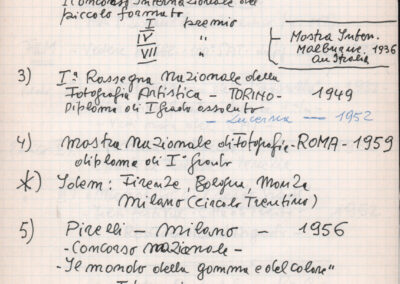 II Concorso Internazionale del
piccolo formato
I premio
IV "
VII "
Mostra Intern.
Melburne. 1936
Australia
3) Iª Rassegna Nazionale della
Fotografia Artistica – TORINO – 1949
Diploma di I grado assoluto
– Lucerna — 1952
4) Mostra Nazionale di Fotografia – ROMA – 1959
diploma di I° grado
*) Idem: Firenze, Bologna, Monza
Milano (Circolo Trentino)
5) Pirelli – Milano – 1956
– Concorso Nazionale –
– "Il mondo della gomma e del colore"